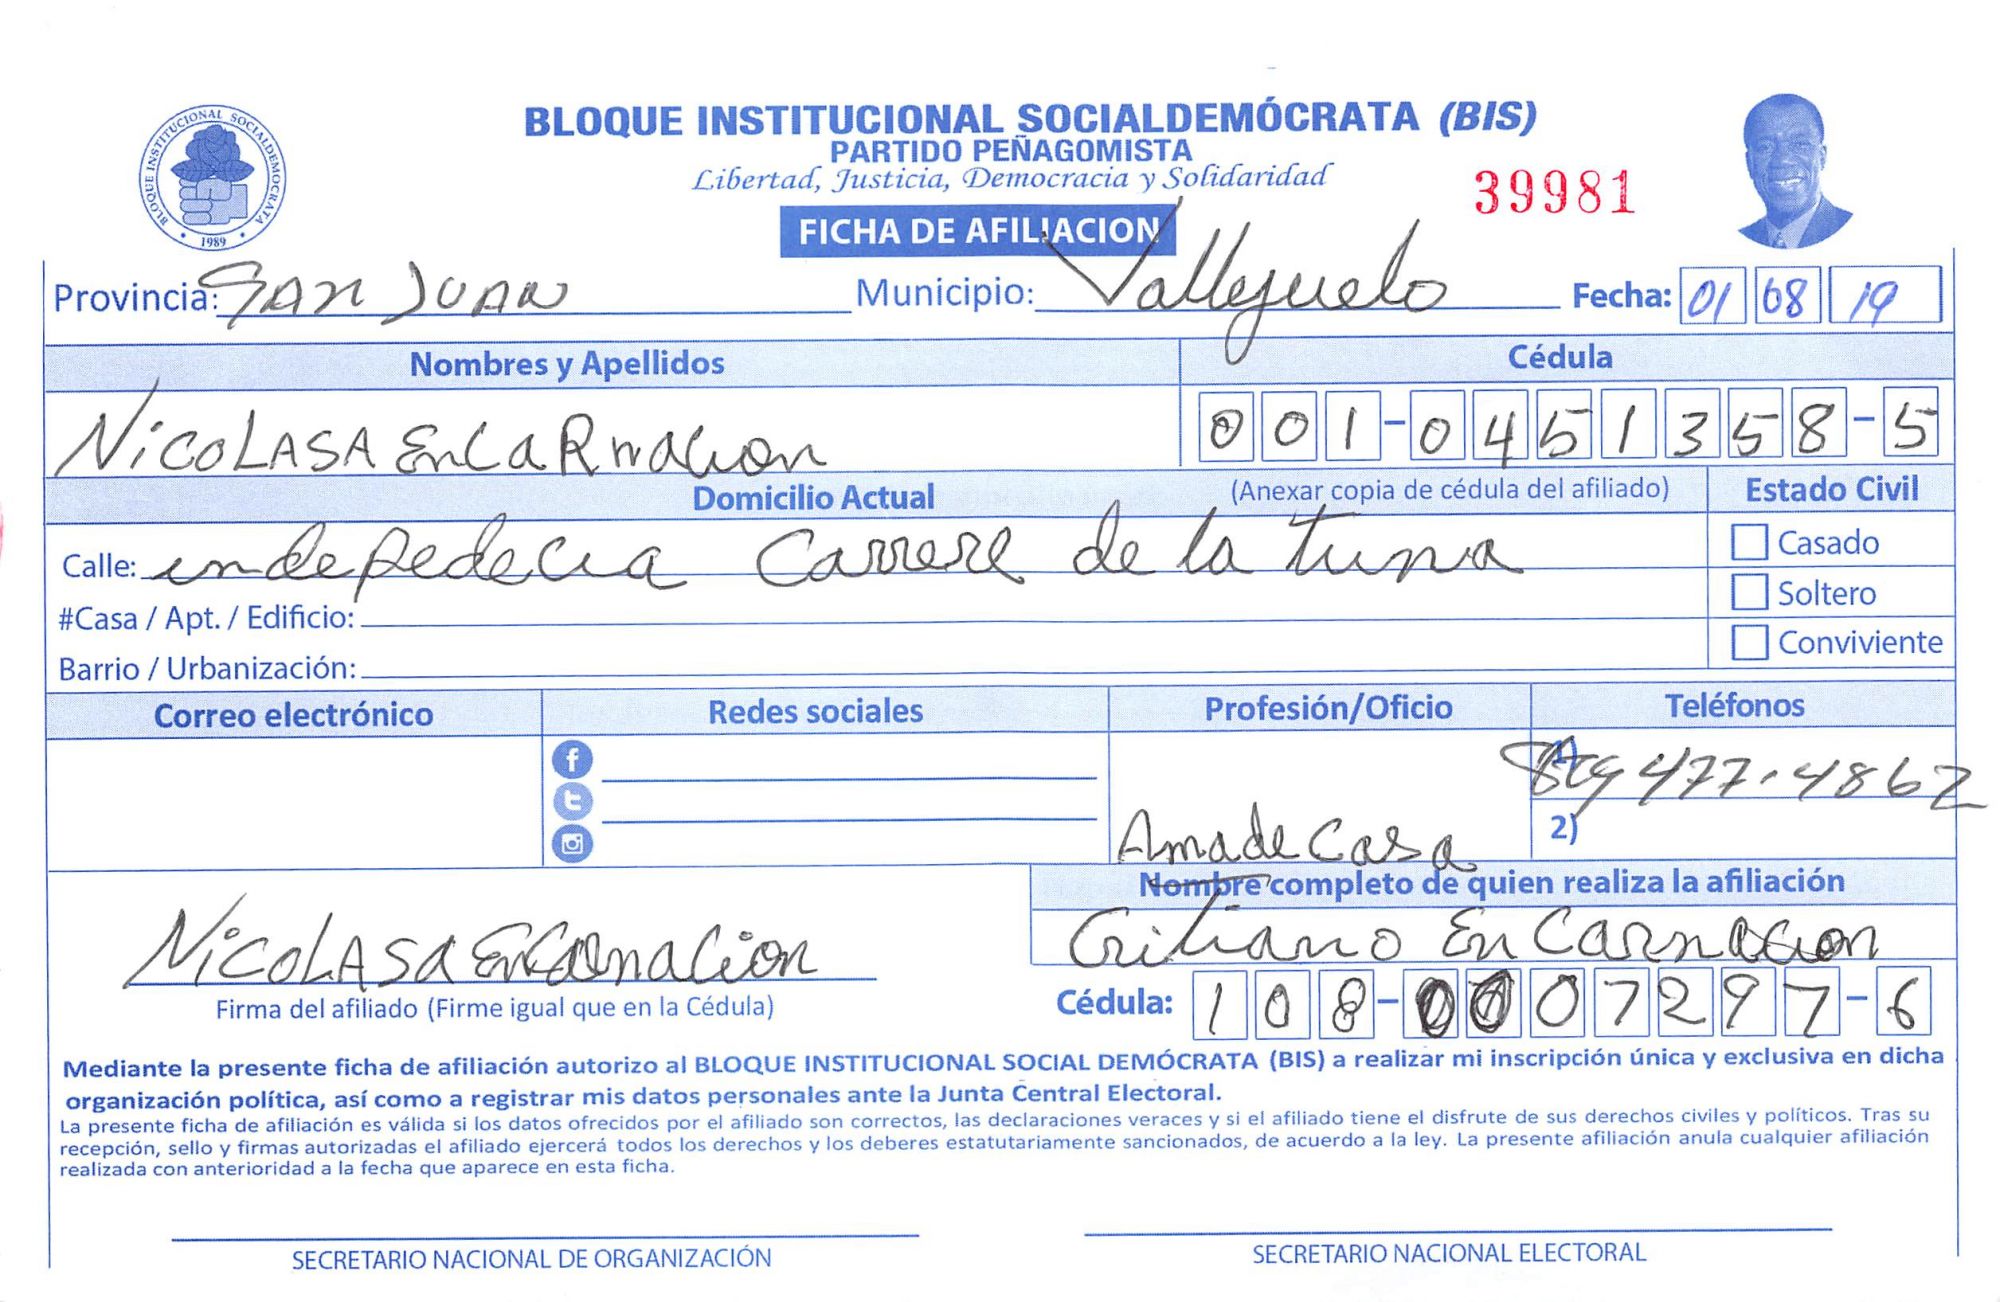 BLOQUE INSTITUCIONAL SOCIALDEMÓCRATA (BIS)
PARTIDO PEÑAGOMISTA
Libertad, Justicia, Democracia y Solidaridad
39981
BLOQUE INSTITUCIONAL SOCIALDEMOCRATA
1989
FICHA DE AFILIACION
Provincia: SAN JUAN Municipio: Vallejuelo Fecha: 01 08 19
Nombres y Apellidos Cédula
NicoLASA EnCaRnacion 001-0451358-5
Domicilio Actual (Anexar copia de cédula del afiliado) Estado Civil
Calle: indepedecia Carrere de la tuna Casado
#Casa / Apt. / Edificio: Soltero
Barrio / Urbanización: Conviviente
Correo electrónico Redes sociales Profesión/Oficio Teléfonos
1) 809 477-4862
2)
Ama de Casa
Nombre completo de quien realiza la afiliación
NicoLASA Encarnacion Critiano EnCarnacion
Firma del afiliado (Firme igual que en la Cédula) Cédula: 108-0007297-6
Mediante la presente ficha de afiliación autorizo al BLOQUE INSTITUCIONAL SOCIAL DEMÓCRATA (BIS) a realizar mi inscripción única y exclusiva en dicha
organización política, así como a registrar mis datos personales ante la Junta Central Electoral.
La presente ficha de afiliación es válida si los datos ofrecidos por el afiliado son correctos, las declaraciones veraces y si el afiliado tiene el disfrute de sus derechos civiles y políticos. Tras su
recepción, sello y firmas autorizadas el afiliado ejercerá todos los derechos y los deberes estatutariamente sancionados, de acuerdo a la ley. La presente afiliación anula cualquier afiliación
realizada con anterioridad a la fecha que aparece en esta ficha.
SECRETARIO NACIONAL DE ORGANIZACIÓN SECRETARIO NACIONAL ELECTORAL